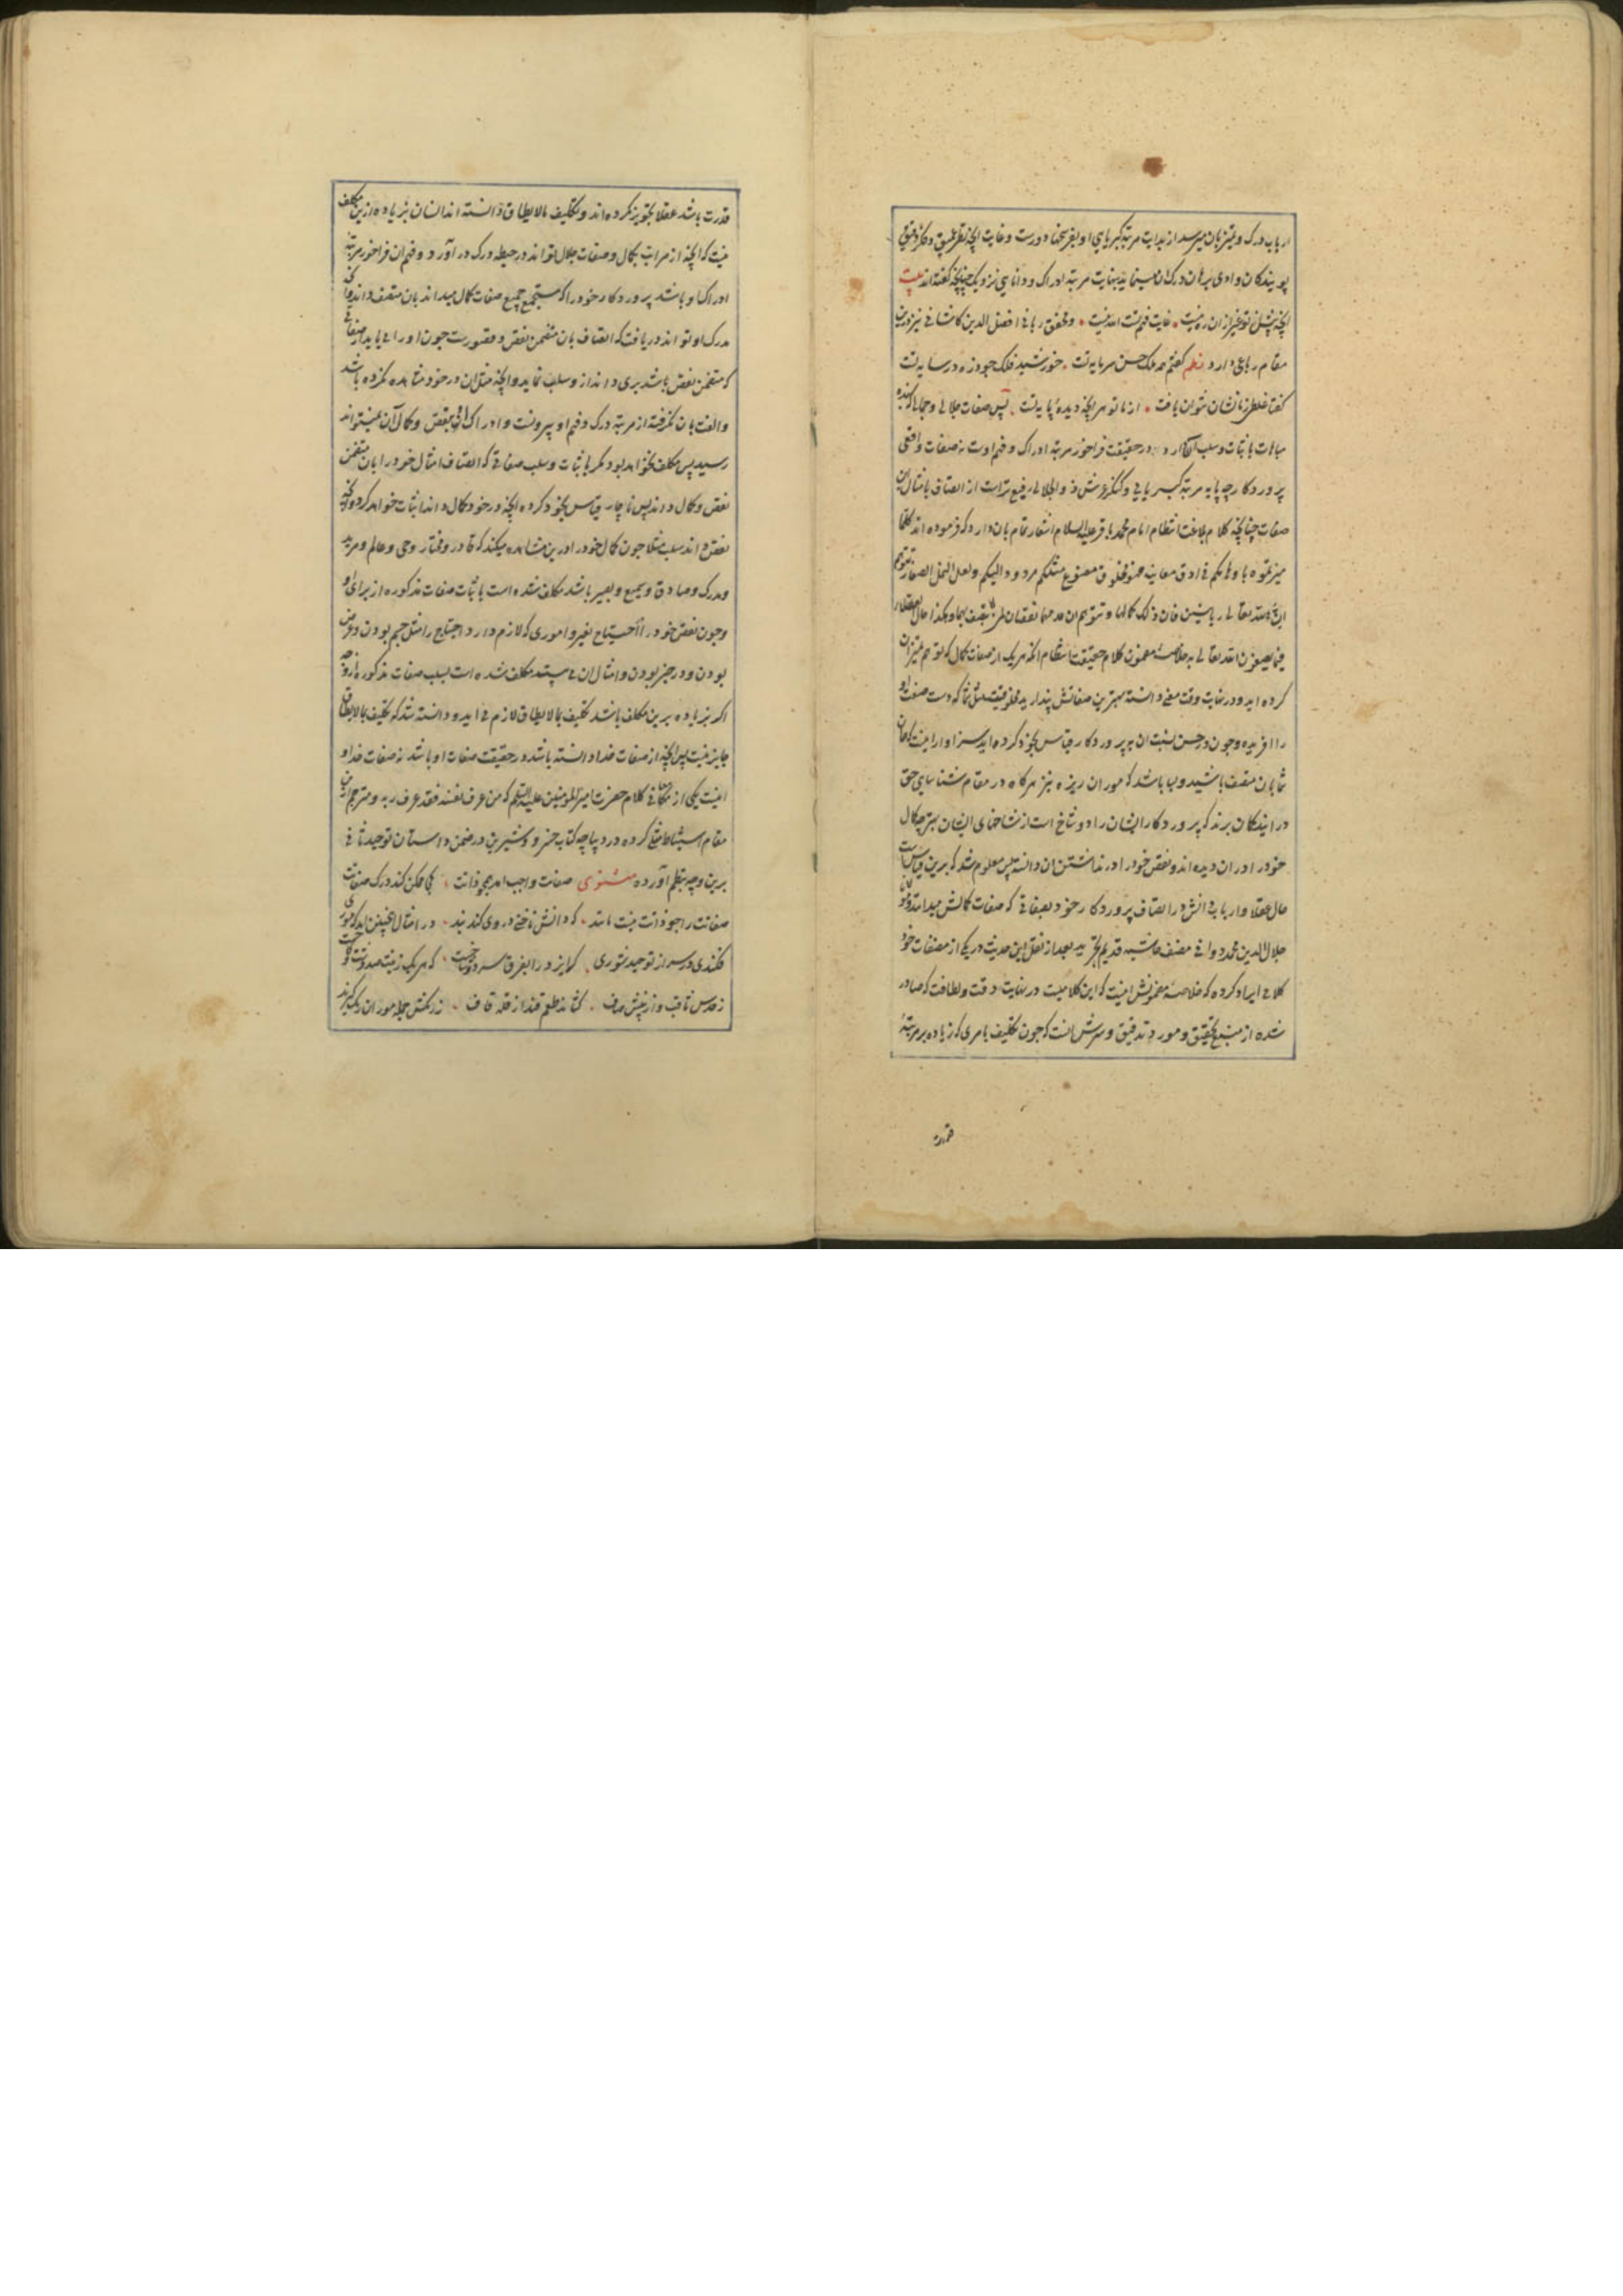 ارباب درک و تمیز بآن میرسد از بدایت مرتبه کبریایی او بفرسخها دورست و غایت آنچه نظر عمیق و فکر دقیق
پویندگان وادی برهان درک آن مینماید بنهایت مرتبه ادراک و دانایی نزدیک چنانچه گفته‌اند بیت
آنچه پیش تو غیر ازان ره نیست غایت فهم تست الله نیست و محقق ربانی افضل الدین کاشانی نیز درین
مقام رباعی دارد نظم گفتم همه ملک حسن سرمایه تست خورشید فلک چو ذره در سایه تست
گفتا غلطی زما نشان نتوان یافت از ما تو هر آنچه دیده پایه تست پس صفات جلالی و جمالی که بنده
مباهات باثبات و سلب آن دارد در حقیقت فراخور مرتبه ادراک و فهم اوست نه صفات واقعی
پروردگار چه پایه مرتبه کبریایی و کنگره عرش ذو الجلالی رفیع تر است از اتصاف بامثال این
صفات چنانچه کلام بلاغت انتظام امام محمد باقر علیه السلام اشعار تمام بآن دارد که فرموده‌اند کلما
میزتموه باوهامکم فی ادق معانیه فهو مخلوق مصنوع مثلکم مردود الیکم و لعل النمل الصغار تتوهم
ان الله تعالی زبانیتین فان ذلک کمالها و تتوهم ان عدمها نقصان لمن لا یتصف بهما و هکذا حال العقلاء
فیما یصفون الله تعالی به خلاصه مضمون کلام حقیقت انتظام آنکه هر یک از صفات کمال که بوهم تمیز آن
کرده‌اید و در نهایت دقت معنی دانسته بهترین صفاتش پندارید مخلوقیست مثل شما که دست صنعت او
را آفریده و چون در حسن نسبت آن به پروردگار قیاس بخود کرده‌اید سزاوار اینست که همان
شما بآن متصف باشید و بسا باشد که موران ریزه نیز هرگاه در مقام شناسایی حق
در آیند گمان برند که پروردگار ایشان را دو شاخ است از شاخهای ایشان بهتر چه کمال
خود را در آن دیده‌اند و نقص خود را در نداشتن آن دانسته پس معلوم شد که برین قیاس است
حال عقلا و ارباب دانش در اتصاف پروردگار خود بصفاتی که صفات کمالش میدانند و مولانا
جلال الدین محمد دوانی مصنف حاشیه قدیم تجرید بعد از نقل این حدیث در یکی از مصنفات خود
کلامی ایراد کرده که خلاصه مضمونش اینست که این کلامیست در نهایت دقت و لطافت که صادر
شده از منبع تحقیق و مورد تدقیق و سرش آنست که چون تکلیف بامری که زیاده بر مرتبه
قدرت
قدرت باشد عقلا تجویز نکرده‌اند و تکلیف مالایطاق دانسته‌اند انسان بزیاده ازین مکلف
نیست که آنچه از مراتب کمال و صفات جلال تواند در حیطه درک در آورد و فهم آن فراخور مرتبه
ادراک او باشد پروردگار خود را که مستجمع جمیع صفات کمال میداند بآن متصف داند و آنچه
مدرک او تواند دریافت که اتصاف بآن متضمن نقص و قصورست چون او را می‌باید از صفاتی
که متضمن نقص باشد بری داند ازو سلب نماید و آنچه مثل آن در خود مشاهده نکرده باشد
و الفت بآن نگرفته از مرتبه درک و فهم او بیرونست و ادراک او بنقص و کمال آن نمیتواند
رسید پس مکلف نخواهد بود مگر باثبات و سلب صفاتی که اتصاف امثال خود را بآن متضمن
نقص و کمال داند پس ناچار قیاس بخود کرده آنچه در خود کمال داند اثبات خواهد کرد و آنچه
نقص داند سلب مثلا چون کمال خود را درین مشاهده میکند که قادر و مختار و حی و عالم و مرید
و مدرک و صادق و سمیع و بصیر باشد مکلف شده است باثبات صفات مذکوره از برای او
و چون نقص خود را احتیاج بغیر و اموری که لازم دارد احتیاج را مثل جسم بودن و عرض
بودن و در حیز بودن و امثال آن می‌بیند مکلف شده است بسلب صفات مذکوره ازو چه
اگر بزیاده برین مکلف باشد تکلیف بمالایطاق لازم می‌آید و دانسته شد که تکلیف بمالایطاق
جایز نیست پس آنچه از صفات خدا دانسته باشد در حقیقت صفات او باشد نه صفات خدا و
اینست یکی از معانی کلام حضرت امیر المومنین علیه السلم که من عرف نفسه فقد عرف ربه و مترجم این
مقام استیفا کرده در دیباچه کتاب خسرو و شیرین در ضمن داستان توحید ثانی
برین وجه بنظم آورده مثنوی صفات واجب آمد همچو ذاتت کجا ممکن کند درک صفاتت
صفاتت را چو ذاتت نیست مانند که دانش ناخنی در وی کند بند در امثال چنین آید که موری
فکندی در سر از توحید شوری که ایزد را بفرق سر دو شاخست که هر یک زینت صد
ز حدس ثاقب و از بینش صاف کشاند طعم قند از قله قاف